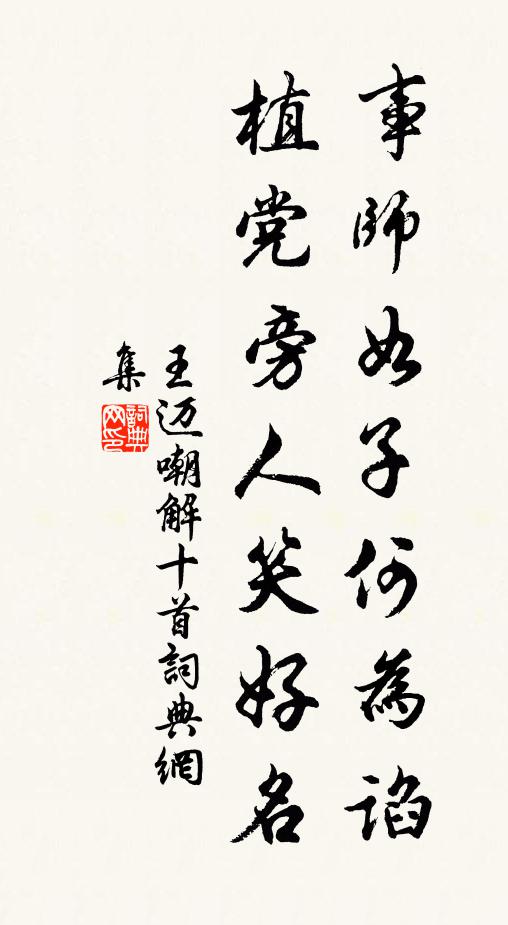 事師如子何為諂
植党旁人笑好名
王迈嘲解十首詞典網
集
詞典
网印